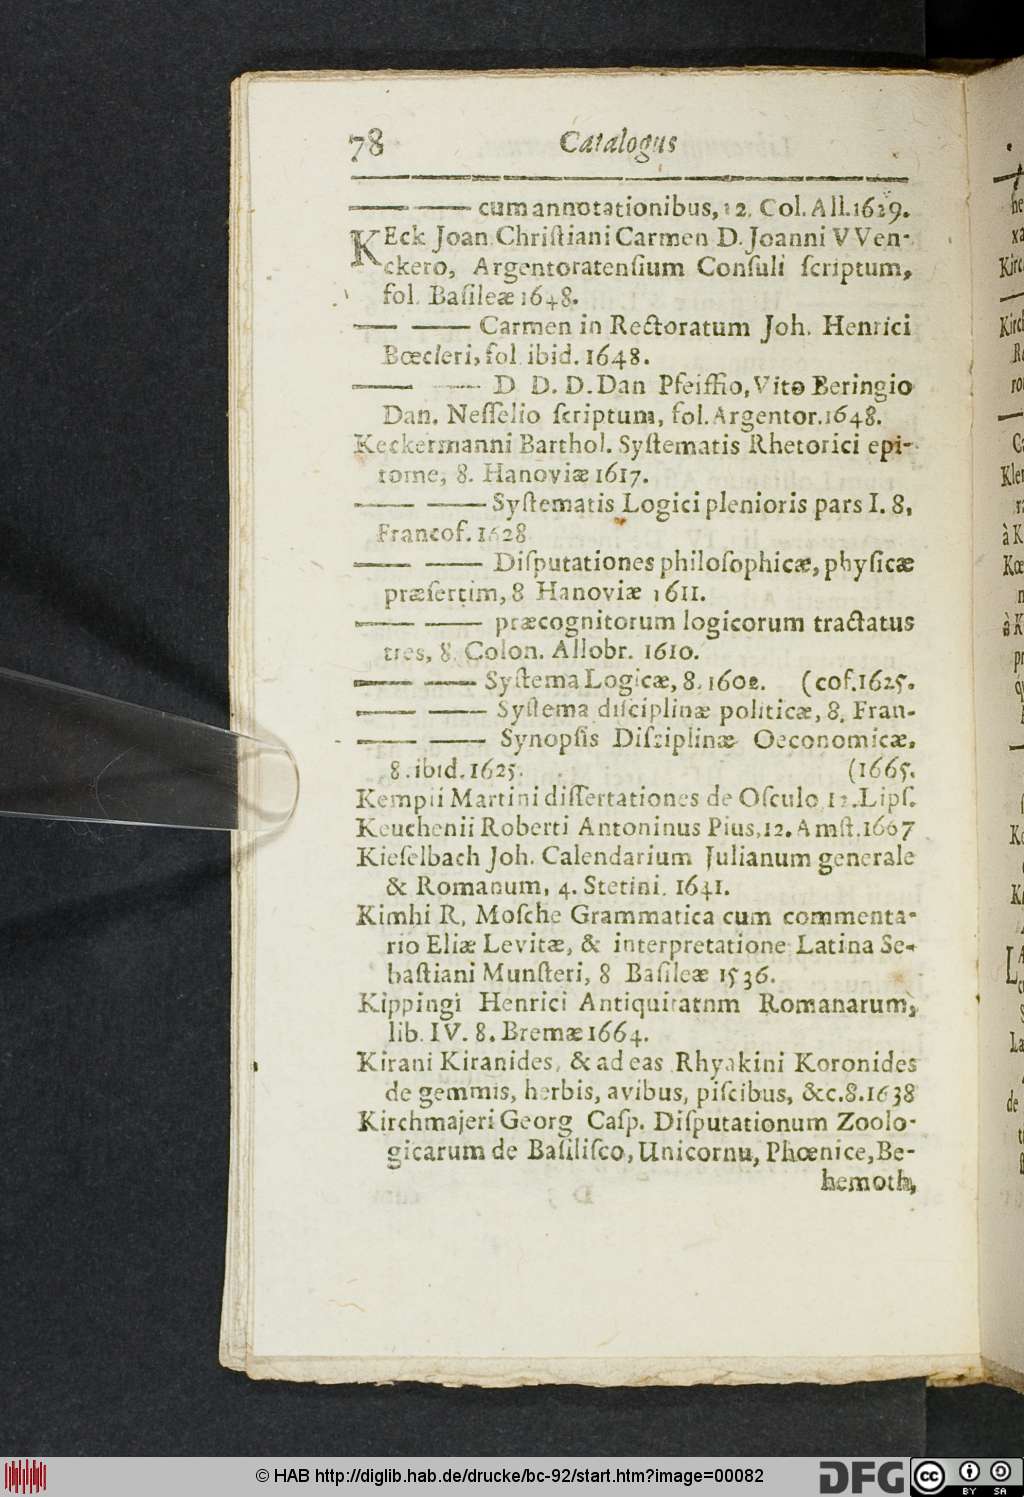 78 Catalogus
—— —— cum annotationibus, 12. Col. All. 1629.
KEck Joan. Chriſtiani Carmen D. Joanni VVen-
ckero, Argentoratenſium Conſuli ſcriptum,
fol. Baſileæ 1648.
—— —— Carmen in Rectoratum Joh. Henrici
Bœcleri, fol. ibid. 1648.
—— —— D. D. D. Dan Pfeiffio, Vito Beringio
Dan. Neſſelio ſcriptum, fol. Argentor. 1648.
Keckermanni Barthol. Syſtematis Rhetorici epi-
tome, 8. Hanoviæ 1617.
—— —— Syſtematis Logici plenioris pars I. 8,
Francof. 1628
—— —— Diſputationes philoſophicæ, phyſicæ
præſertim, 8 Hanoviæ 1611.
—— —— præcognitorum logicorum tractatus
tres, 8. Colon. Allobr. 1610.
—— —— Syſtema Logicæ, 8. 1602. (cof. 1625.
—— —— Syſtema diſciplinæ politicæ, 8. Fran-
—— —— Synopſis Diſciplinæ Oeconomicæ,
8. ibid. 1625. (1665.
Kempii Martini diſſertationes de Oſculo, 12. Lipſ.
Keuchenii Roberti Antoninus Pius, 12. Amſt. 1667
Kieſelbach Joh. Calendarium Julianum generale
& Romanum, 4. Stetini. 1641.
Kimhi R. Moſche Grammatica cum commenta-
rio Eliæ Levitæ, & interpretatione Latina Se-
baſtiani Munſteri, 8 Baſileæ 1536.
Kippingi Henrici Antiquitatnm Romanarum,
lib. IV. 8. Bremæ 1664.
Kirani Kiranides, & ad eas Rhyakini Koronides
de gemmis, herbis, avibus, piſcibus, &c. 8. 1638
Kirchmajeri Georg Caſp. Diſputationum Zoolo-
gicarum de Baſiliſco, Unicornu, Phœnice, Be-
hemoth,
© HAB http://diglib.hab.de/drucke/bc-92/start.htm?image=00082
DFG
cc BY SA